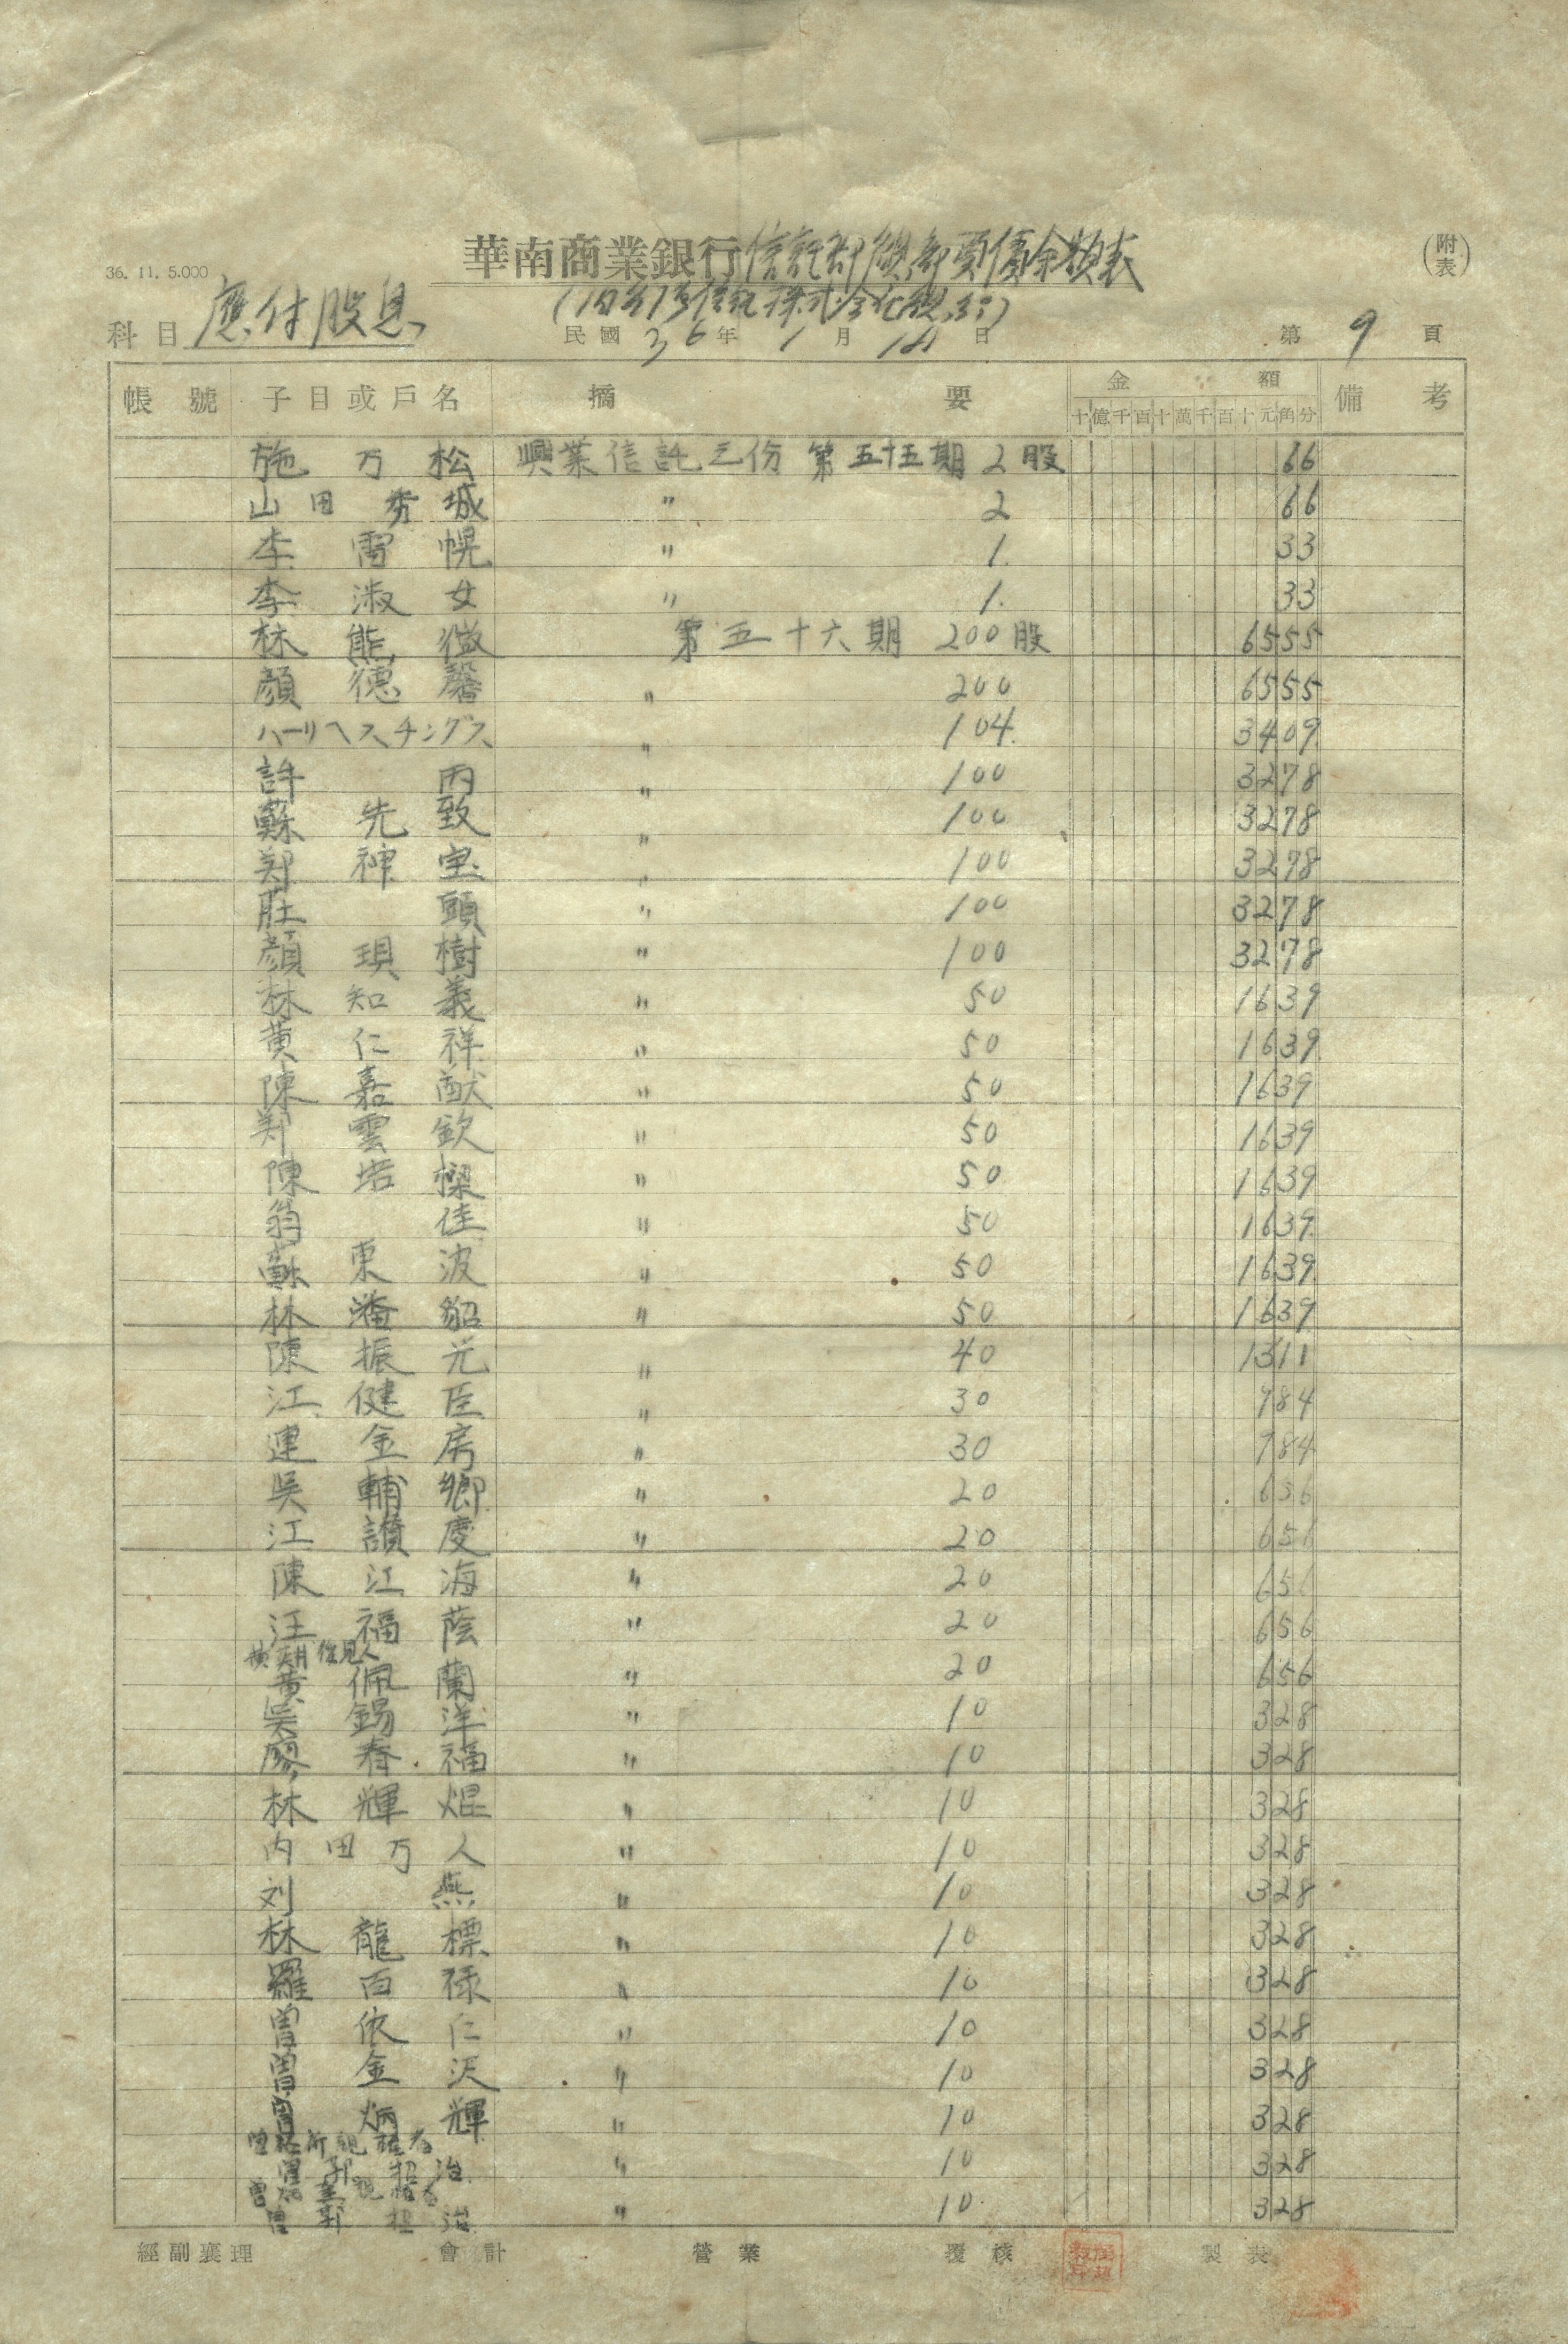 36. 11. 5.000
華南商業銀行信託部總部頭價余額表
(附表)
科目 應付股息
民國 36年 1月 日
第 9 頁
帳號 子目或戶名 摘要 金額 備考
十億千百十萬千百十元角分
施万松 興業信託三份 第五十五期 2股 66
山田秀城 〃 2 66
李雷幌 〃 1. 33
李淑女 〃 1. 33
林熊徵 第五十六期 200股 6555
顏德馨 〃 200 6555
ハーリヘスチングス 〃 104. 3409
許丙 〃 100 3278
蘇先致 〃 100 3278
郑神宝 〃 100 3278
肚頭 〃 100 3278
顏瑱樹 〃 100 3278
林知義 〃 50 1639
黄仁祥 〃 50 1639
陳嘉猷 〃 50 1639
郑雲欽 〃 50 1639
陳岩樑 〃 50 1639
翁佳 〃 50 1639
蘇東波 〃 50 1639
林貂 〃 50 1639
陳振元 〃 40 1311
江健臣 〃 30 984
連金房 〃 30 984
吳輔卿 〃 20 656
江讚慶 〃 20 656
陳江海 〃 20 656
汪福蔭 〃 20 656
後見人
黄佩蘭 〃 20 656
吳錫洋 〃 10 328
廖春福 〃 10 328
林輝焜 〃 10 328
内田万人 〃 10 328
刘燕 〃 10 328
林龍標 〃 10 328
羅百祿 〃 10 328
曽依仁 〃 10 328
曽金沃 〃 10 328
曽炳輝 〃 10 328
親権者
曽 招治 〃 10 328
曽 親権者
曽 招治 〃 10. 328
經副襄理 會計 營業 覆核 製表